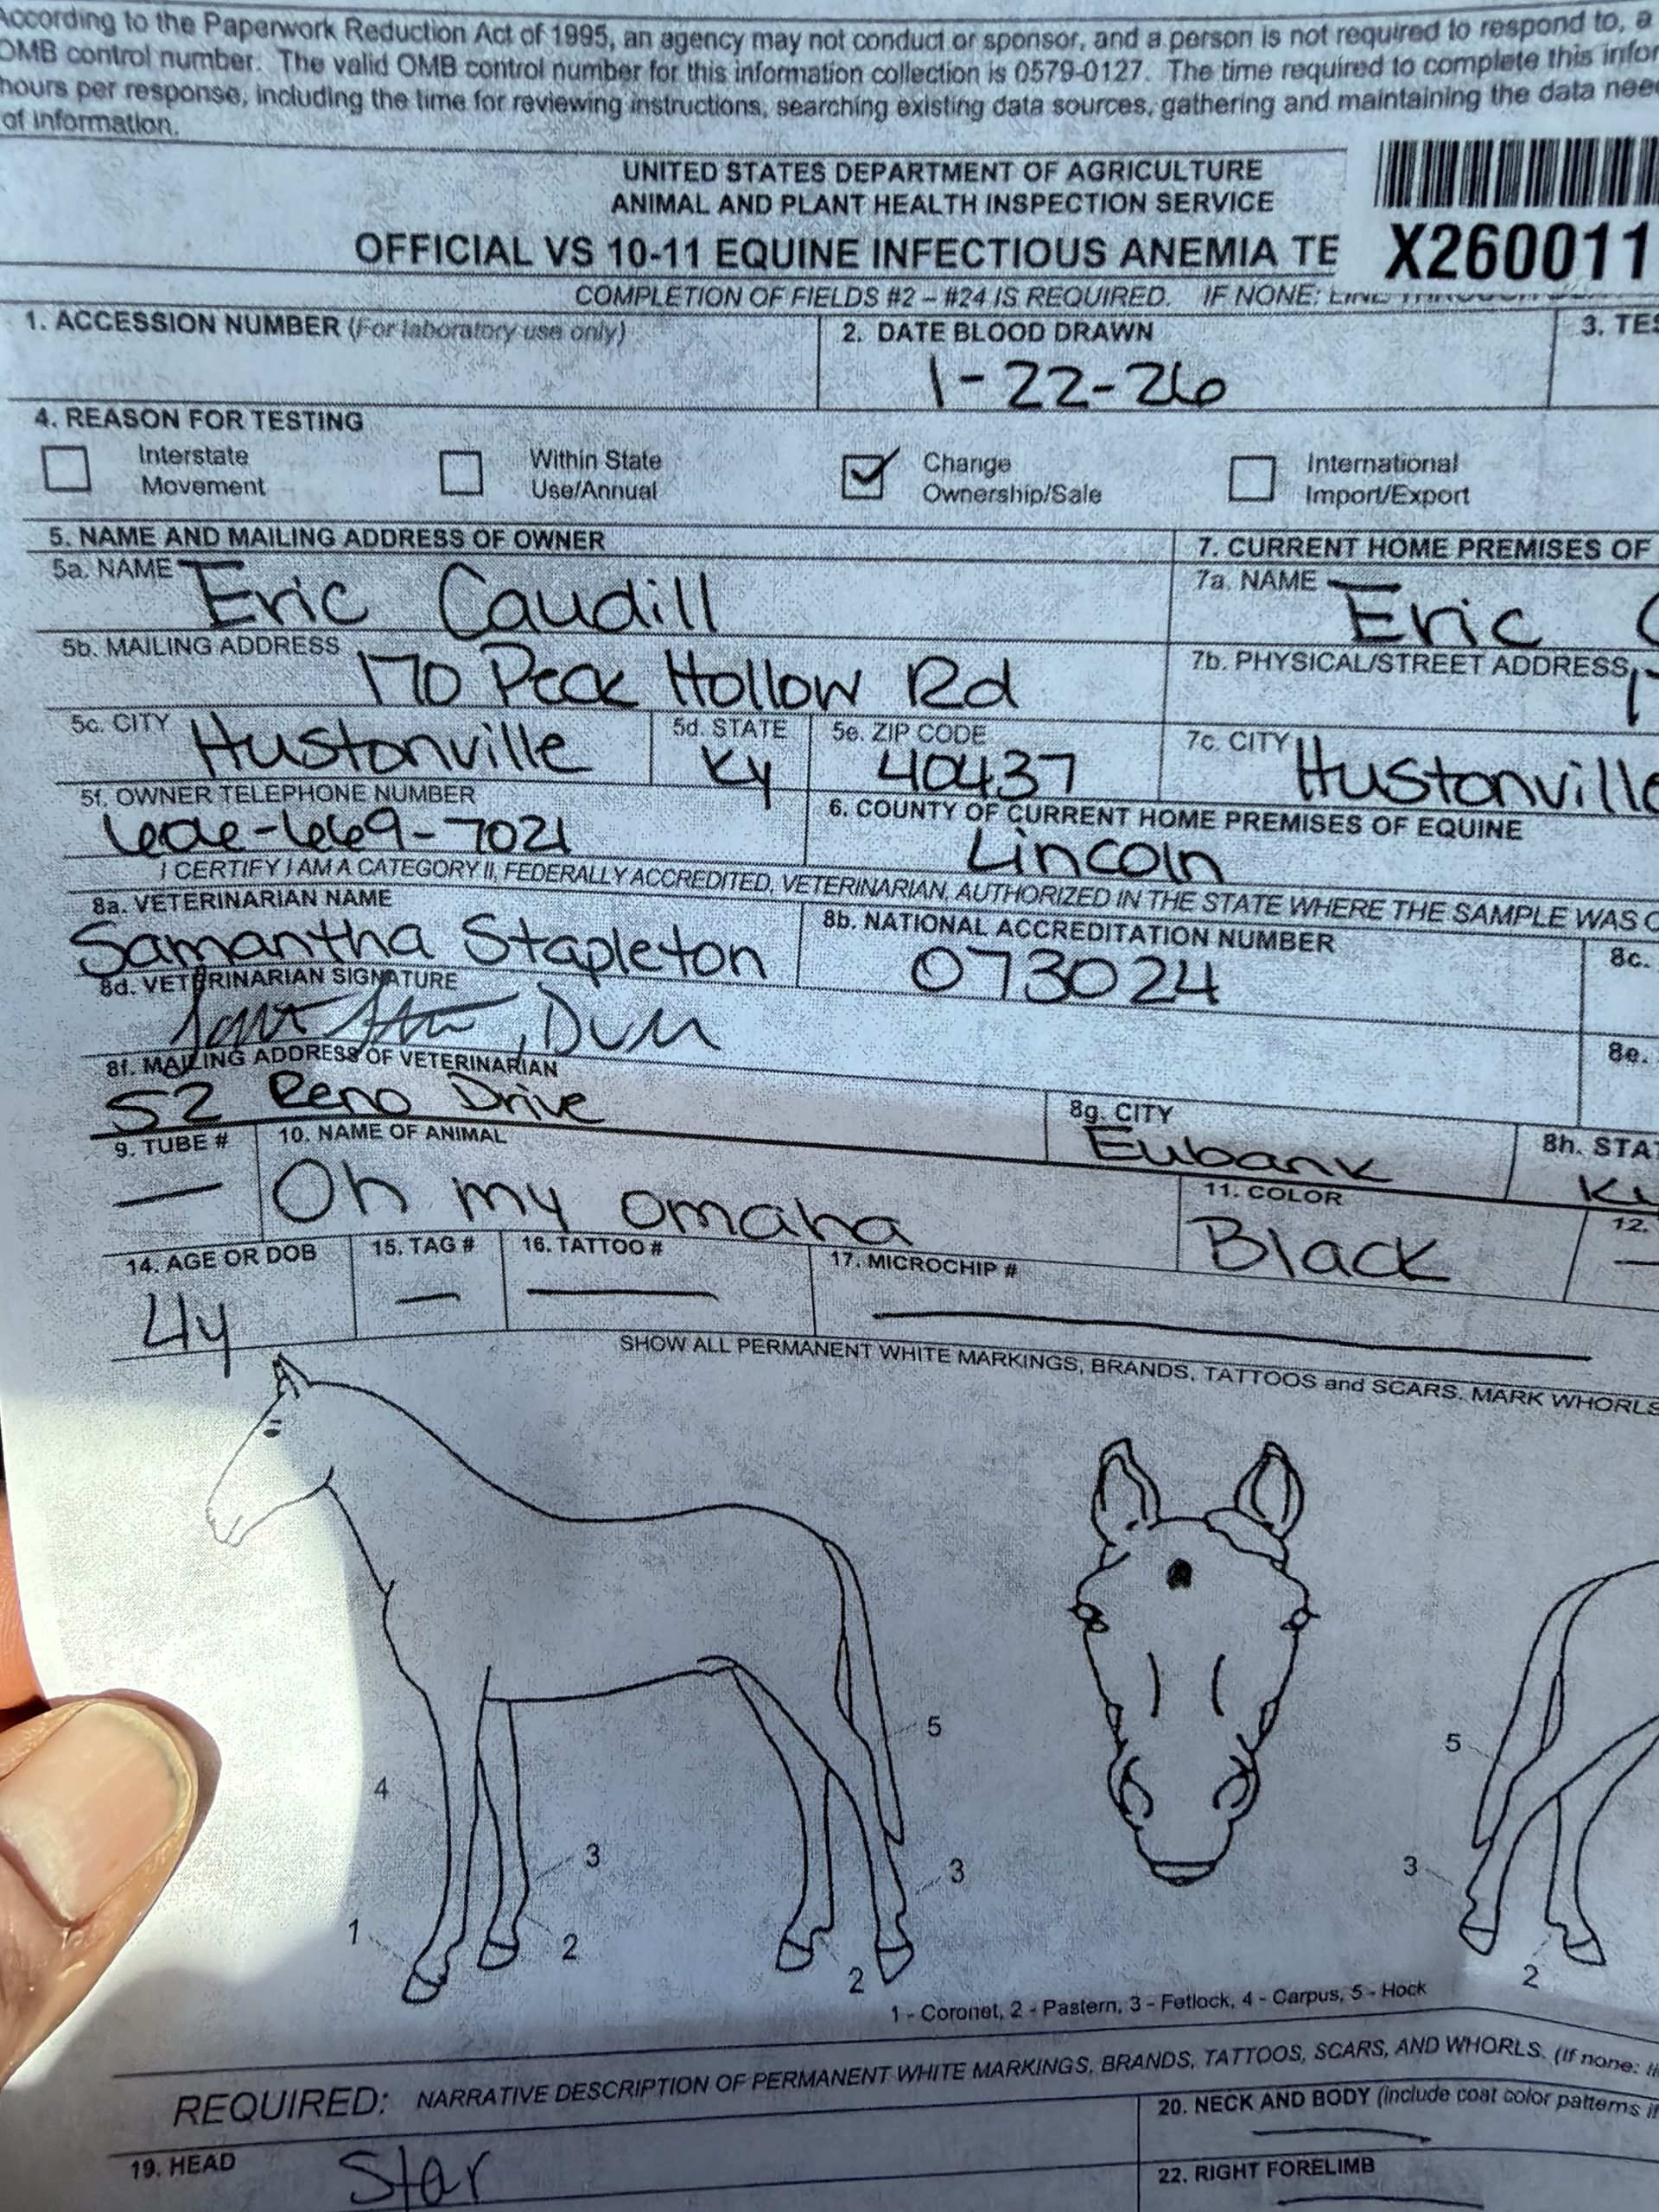 According to the Paperwork Reduction Act of 1995, an agency may not conduct or sponsor, and a person is not required to respond to, a
OMB control number. The valid OMB control number for this information collection is 0579-0127. The time required to complete this infor
hours per response, including the time for reviewing instructions, searching existing data sources, gathering and maintaining the data nee
of information.
UNITED STATES DEPARTMENT OF AGRICULTURE
ANIMAL AND PLANT HEALTH INSPECTION SERVICE
OFFICIAL VS 10-11 EQUINE INFECTIOUS ANEMIA TE
X260011
COMPLETION OF FIELDS #2 – #24 IS REQUIRED. IF NONE:
1. ACCESSION NUMBER (For laboratory use only)
2. DATE BLOOD DRAWN
1-22-26
3. TES
4. REASON FOR TESTING
Interstate Movement
Within State Use/Annual
Change Ownership/Sale
International Import/Export
5. NAME AND MAILING ADDRESS OF OWNER
7. CURRENT HOME PREMISES OF
5a. NAME Eric Caudill
7a. NAME Eric C
5b. MAILING ADDRESS 170 Peck Hollow Rd
7b. PHYSICAL/STREET ADDRESS 1
5c. CITY Hustonville
5d. STATE Ky
5e. ZIP CODE 40437
7c. CITY Hustonville
5f. OWNER TELEPHONE NUMBER
606-669-7021
6. COUNTY OF CURRENT HOME PREMISES OF EQUINE
Lincoln
I CERTIFY I AM A CATEGORY II, FEDERALLY ACCREDITED, VETERINARIAN, AUTHORIZED IN THE STATE WHERE THE SAMPLE WAS C
8a. VETERINARIAN NAME
Samantha Stapleton
8b. NATIONAL ACCREDITATION NUMBER
073024
8c.
8d. VETERINARIAN SIGNATURE
, DVM
8e.
8f. MAILING ADDRESS OF VETERINARIAN
52 Reno Drive
8g. CITY
Eubank
8h. STAT
Ky
9. TUBE #
—
10. NAME OF ANIMAL
Oh my omaha
11. COLOR
Black
12.
—
14. AGE OR DOB
4y
15. TAG #
—
16. TATTOO #
—
17. MICROCHIP #
—
SHOW ALL PERMANENT WHITE MARKINGS, BRANDS, TATTOOS and SCARS. MARK WHORLS
5
4
3
3
1
2
2
5
3
2
1 - Coronet, 2 - Pastern, 3 - Fetlock, 4 - Carpus, 5 - Hock
REQUIRED: NARRATIVE DESCRIPTION OF PERMANENT WHITE MARKINGS, BRANDS, TATTOOS, SCARS, AND WHORLS. (If none: li
19. HEAD Star
20. NECK AND BODY (include coat color patterns if
—
22. RIGHT FORELIMB
—